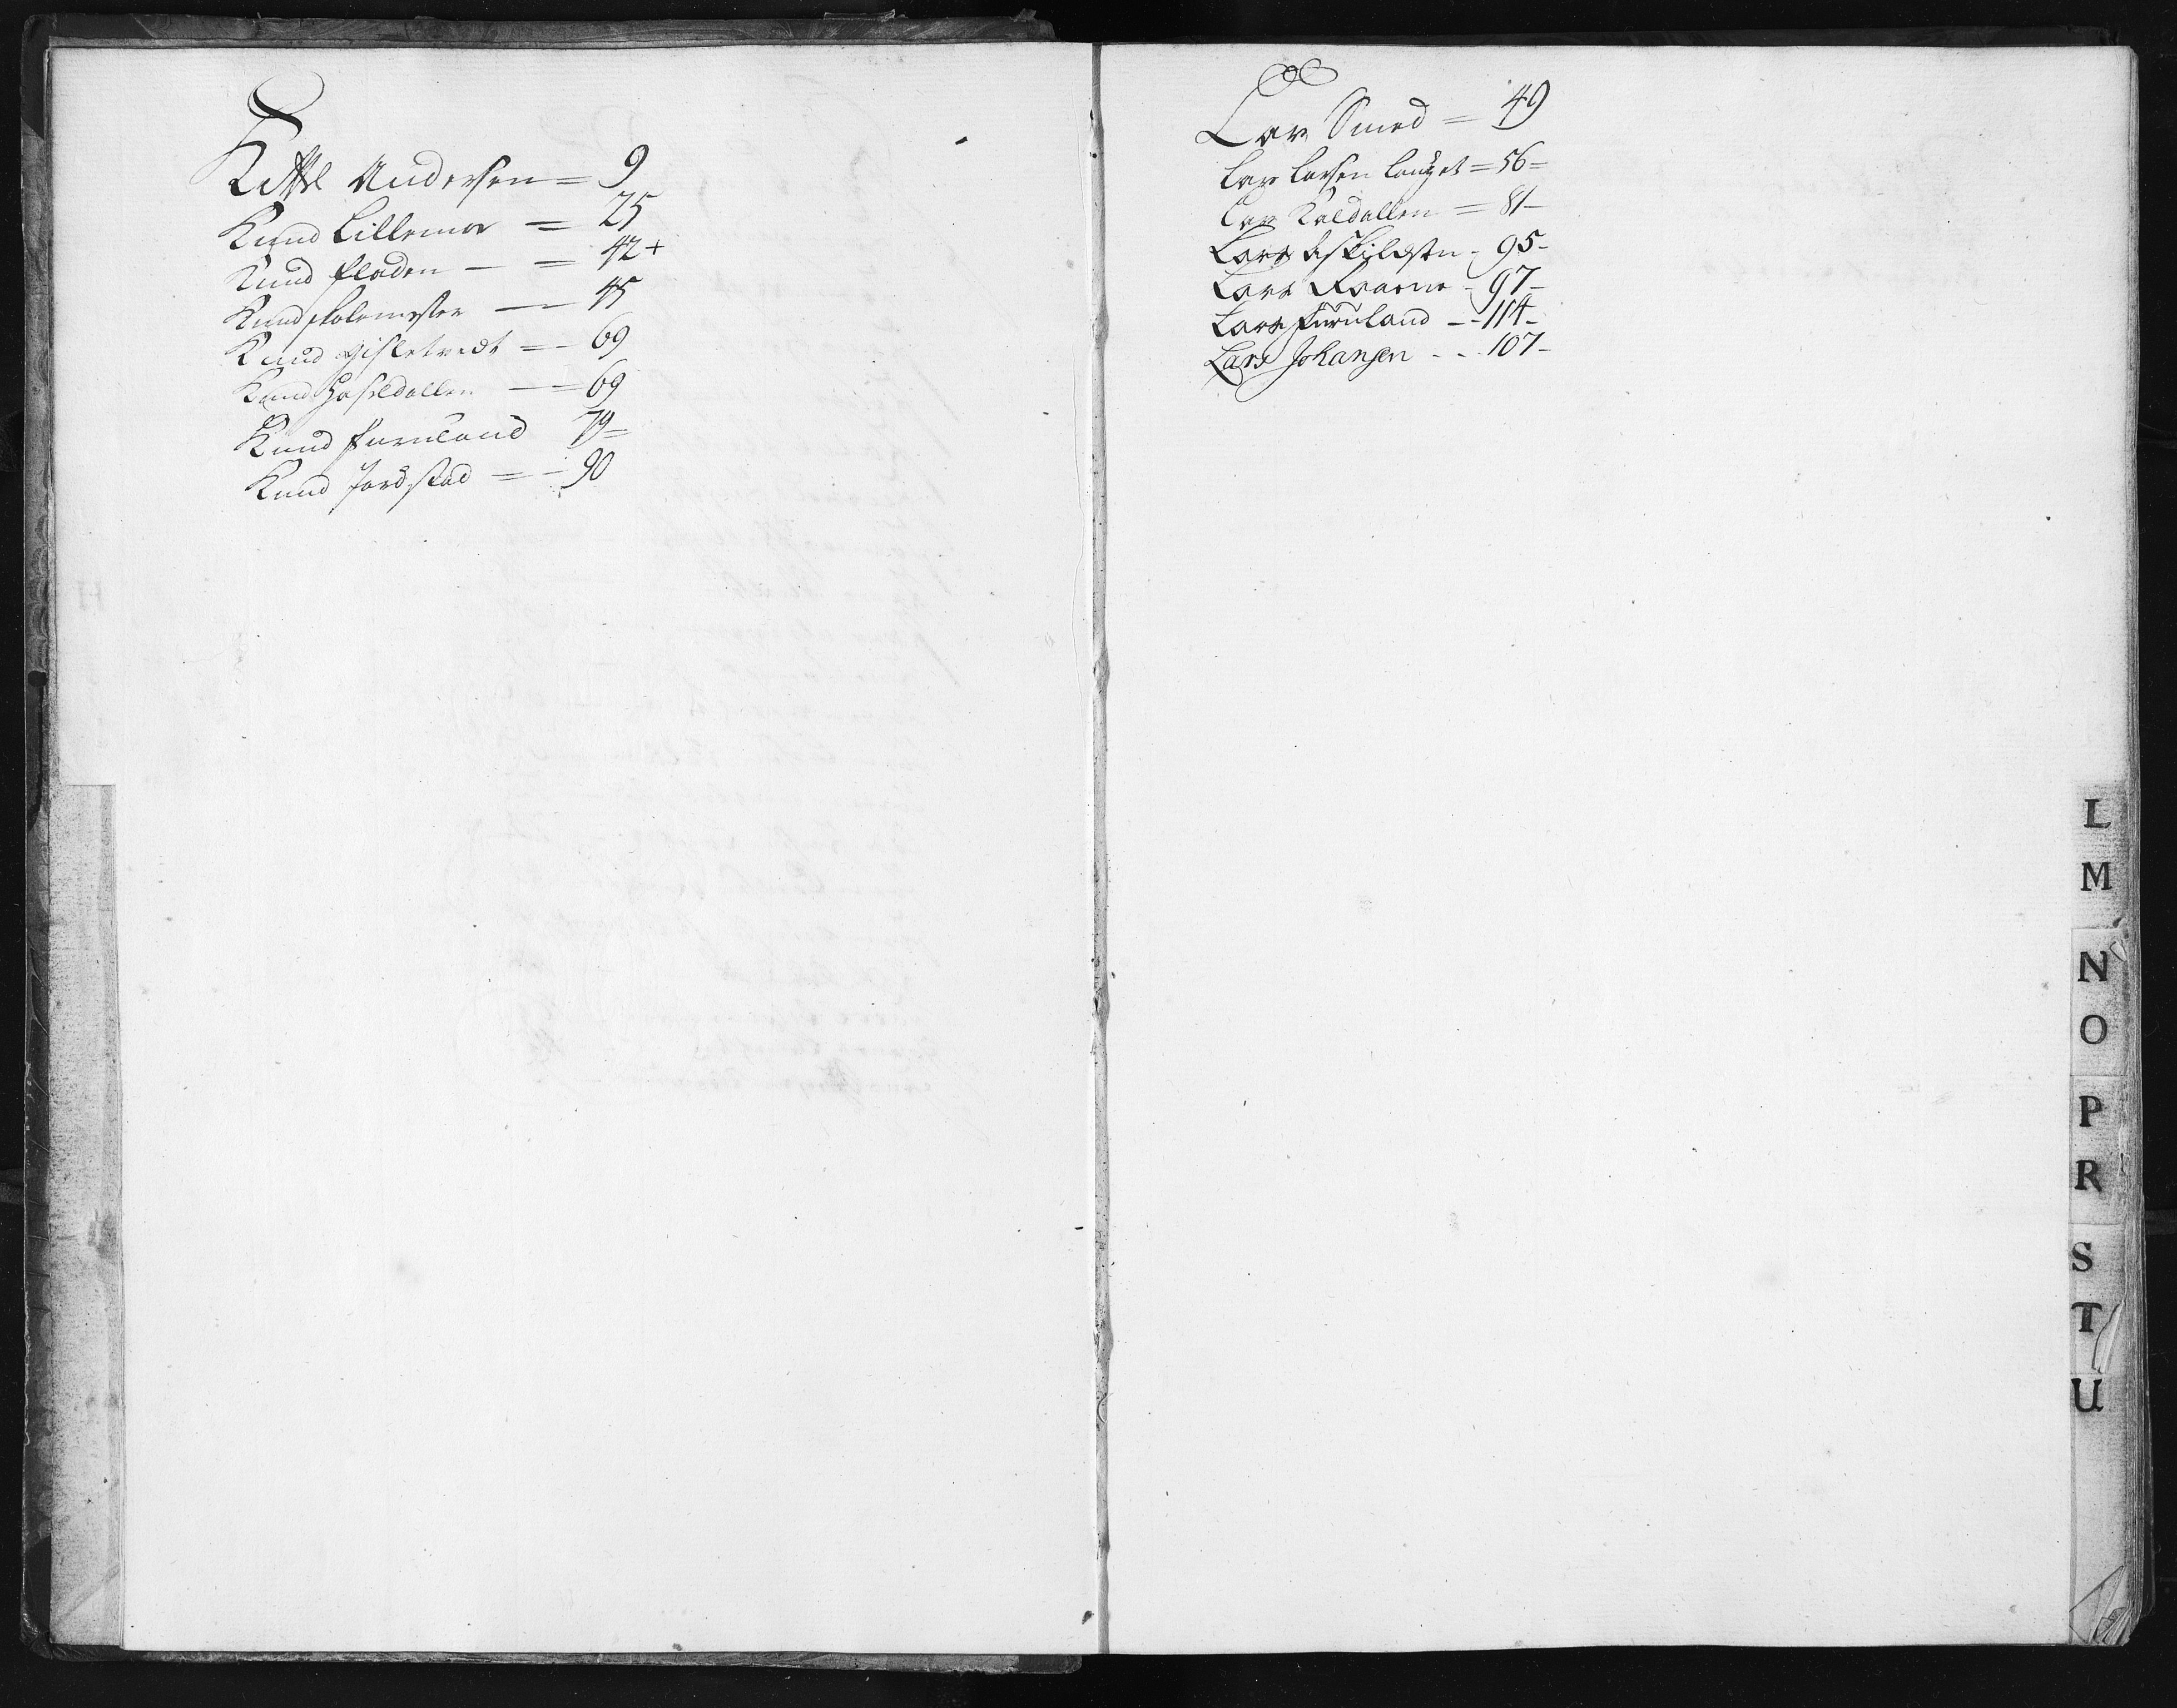 Kittel Andersen = 9
Knud Lillemoe = 25
Knud Fladen — = 42+
Knud skolemester — 45
Knud Gisletvedt = - 69
Knud Hasseldallen — = 69
Knud Furuland 79 =
Knud Jordstad = - 90
Lars Smed = 49
Lars Larsen = 56 =
Lars Kaldallen = 81 -
Lars Eskildsen - 95 -
Lars - 97 -
Lars Furuland - - 114 -
Lars Johansen - - 107 -
L
M
N
O
P
R
S
T
U